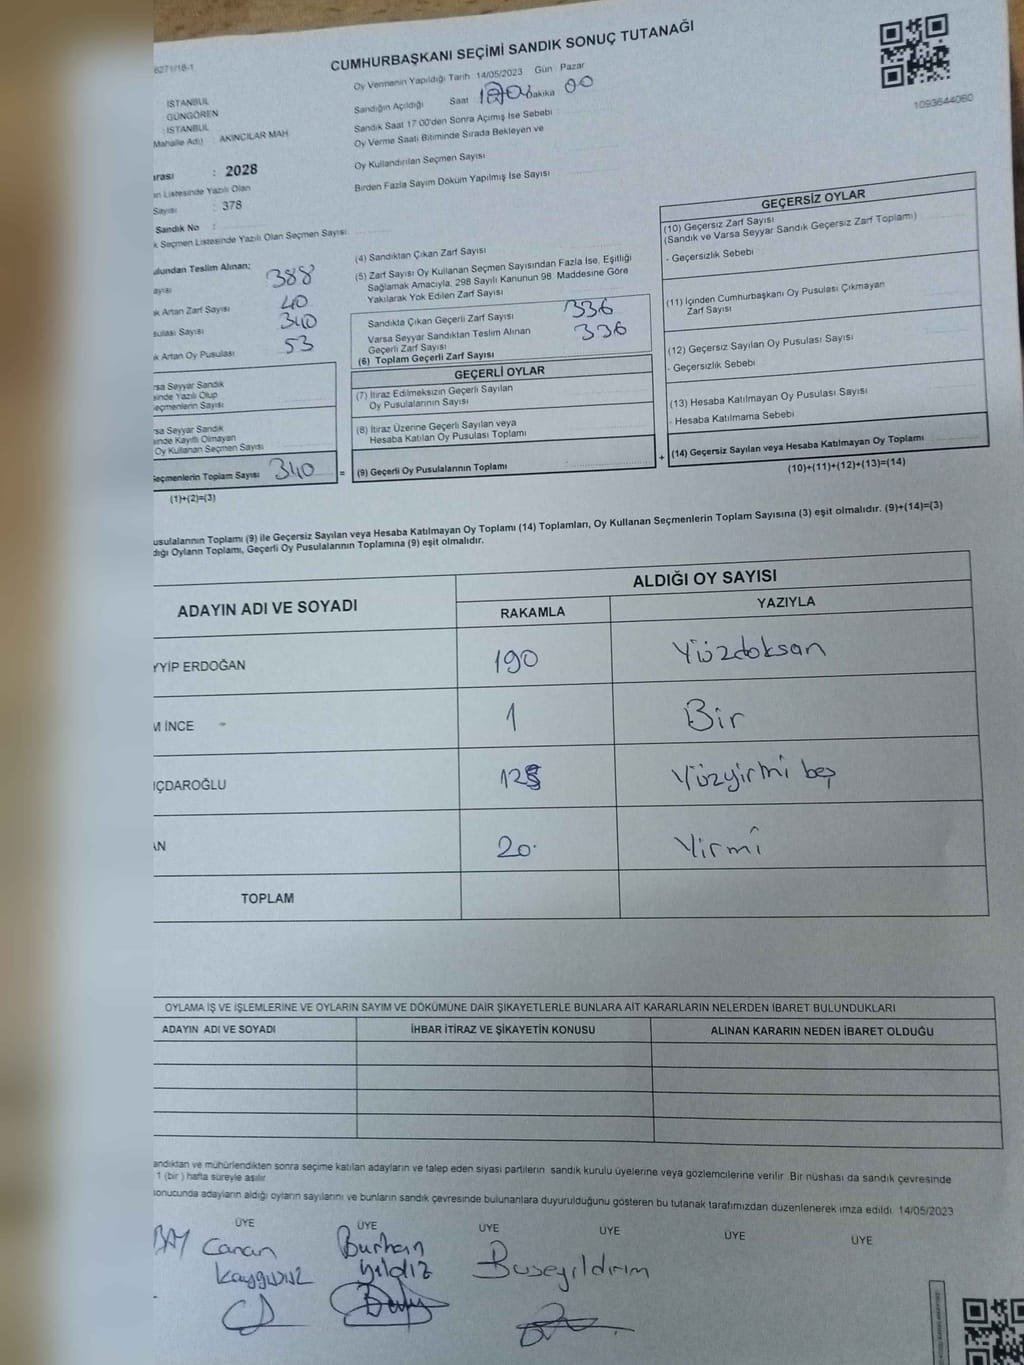 6271/18-1
CUMHURBAŞKANI SEÇİMİ SANDIK SONUÇ TUTANAĞI
Oy Vermenin Yapıldığı Tarih : 14/05/2023 Gün : Pazar
Sandığın Açıldığı Saat Dakika 00
Sandık Saat 17:00'den Sonra Açımış İse Sebebi
Oy Verme Saati Bitiminde Sırada Bekleyen ve
Oy Kullandırılan Seçmen Sayısı
Birden Fazla Sayım Döküm Yapılmış İse Sayısı
1093644060
İSTANBUL
GÜNGÖREN
: İSTANBUL
Mahalle Adı) : AKINCILAR MAH
ırası : 2028
ın Listesinde Yazılı Olan
Sayısı : 378
Sandık No :
k Seçmen Listesinde Yazılı Olan Seçmen Sayısı
ulundan Teslim Alınan;
ayısı 388
ık Artan Zarf Sayısı 40
sulası Sayısı 340
ık Artan Oy Pusulası 53
rsa Seyyar Sandık
sinde Yazılı Olup
eçmenlerin Sayısı
rsa Seyyar Sandık
sinde Kayıtlı Olmayan
Oy Kullanan Seçmen Sayısı
eçmenlerin Toplam Sayısı 340 =
(1)+(2)=(3)
(4) Sandıktan Çıkan Zarf Sayısı
(5) Zarf Sayısı Oy Kullanan Seçmen Sayısından Fazla İse, Eşitliği
Sağlamak Amacıyla, 298 Sayılı Kanunun 98. Maddesine Göre
Yakılarak Yok Edilen Zarf Sayısı
Sandıkta Çıkan Geçerli Zarf Sayısı 336
Varsa Seyyar Sandıktan Teslim Alınan
Geçerli Zarf Sayısı 336
(6) Toplam Geçerli Zarf Sayısı
GEÇERLİ OYLAR
(7) İtiraz Edilmeksizin Geçerli Sayılan
Oy Pusulalarının Sayısı
(8) İtiraz Üzerine Geçerli Sayılan veya
Hesaba Katılan Oy Pusulası Toplamı
(9) Geçerli Oy Pusulalarının Toplamı :
+
GEÇERSİZ OYLAR
(10) Geçersiz Zarf Sayısı
(Sandık ve Varsa Seyyar Sandık Geçersiz Zarf Toplamı)
- Geçersizlik Sebebi
(11) İçinden Cumhurbaşkanı Oy Pusulası Çıkmayan
Zarf Sayısı
(12) Geçersiz Sayılan Oy Pusulası Sayısı
- Geçersizlik Sebebi
(13) Hesaba Katılmayan Oy Pusulası Sayısı
- Hesaba Katılmama Sebebi
(14) Geçersiz Sayılan veya Hesaba Katılmayan Oy Toplamı
(10)+(11)+(12)+(13)=(14)
usulalarının Toplamı (9) ile Geçersiz Sayılan veya Hesaba Katılmayan Oy Toplamı (14) Toplamları, Oy Kullanan Seçmenlerin Toplam Sayısına (3) eşit olmalıdır. (9)+(14)=(3)
dığı Oyların Toplamı, Geçerli Oy Pusulalarının Toplamına (9) eşit olmalıdır.
ADAYIN ADI VE SOYADI
ALDIĞI OY SAYISI
RAKAMLA YAZIYLA
YYİP ERDOĞAN 190 Yüzdoksan
M İNCE 1 Bir
IÇDAROĞLU 125 Yüzyirmi beş
AN 20 Yirmi
TOPLAM
OYLAMA İŞ VE İŞLEMLERİNE VE OYLARIN SAYIM VE DÖKÜMÜNE DAİR ŞİKAYETLERLE BUNLARA AİT KARARLARIN NELERDEN İBARET BULUNDUKLARI
ADAYIN ADI VE SOYADI İHBAR İTİRAZ VE ŞİKAYETİN KONUSU ALINAN KARARIN NEDEN İBARET OLDUĞU
andıktan ve mühürlendikten sonra seçime katılan adayların ve talep eden siyasi partilerin sandık kurulu üyelerine veya gözlemcilerine verilir. Bir nüshası da sandık çevresinde
1 (bir) hafta süreyle asılır.
sonucunda adayların aldığı oyların sayılarını ve bunların sandık çevresinde bulunanlara duyurulduğunu gösteren bu tutanak tarafımızdan düzenlenerek imza edildi. 14/05/2023
ÜYE ÜYE ÜYE ÜYE ÜYE ÜYE
BAY Canan Burhan Buse yıldırım
Kaygusuz Yıldız